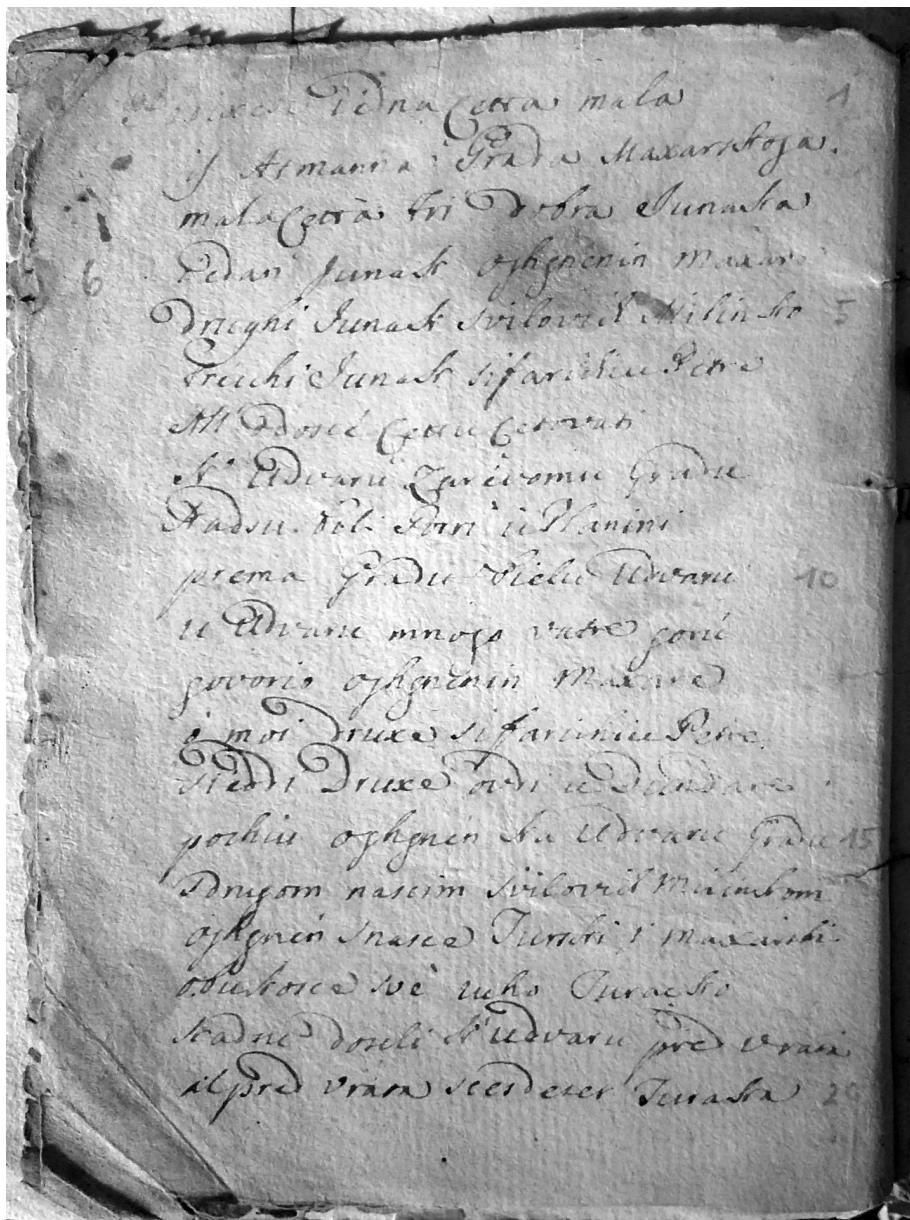 Iedna Cetta mala 1
is Atmanna Grada Maxarskoga.
mala Cetta tri dobra Junaka
6 Iedan Junak Ognenin Maxar
Drugni Junak Svilovich Milinko 5
trechi Junak sifarichiu Petre
Cettu Cetovati
K' Udvaru Zarevomu Gradu
Kadsu bili Gorri u Planini
prema Gradu bielu Udvaru 10
u Udvaru mnogo vatre gorie
govorio oghgnenin Maxare
o moi Druxe sifarichiu Petre
siedi Druxe ovdi u Dundare
pochiu oghgnen ka Udvaru Gradu 15
Sdrugom nascim Svilovich Milinkom
oghgnen snasce Turski i maxarski
obukosce sve ruho Turacko
Kadne dosli K' Udvaru pred vrata
al pred vrata scesdeset Turaka 20